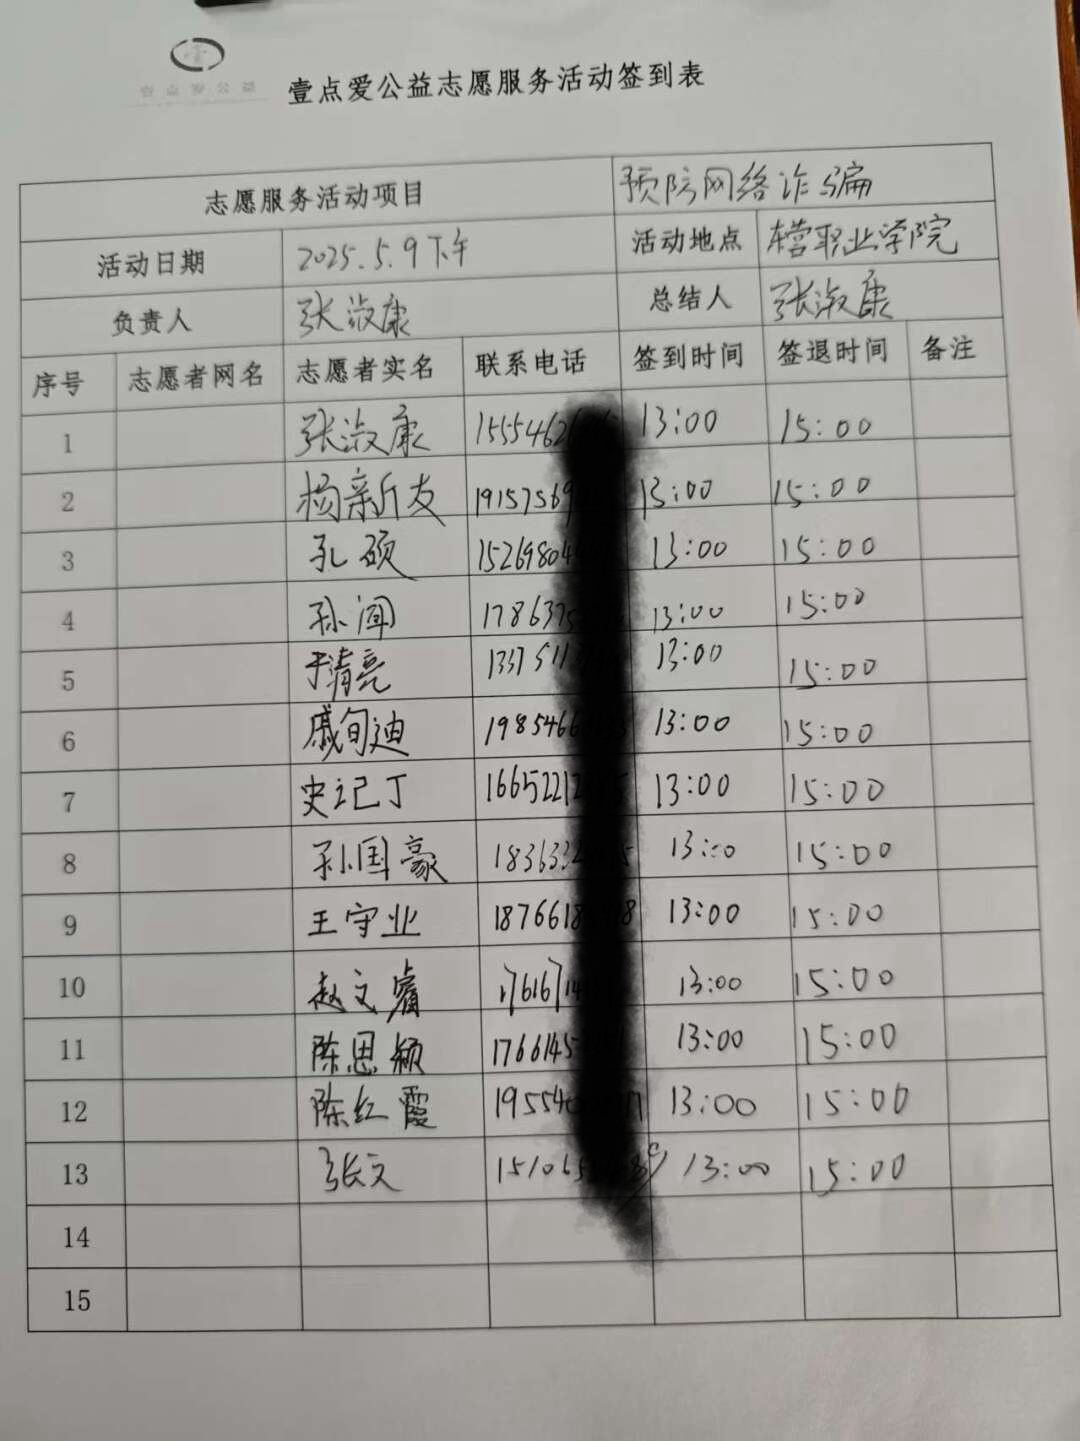 壹点爱公益
壹点爱公益志愿服务活动签到表
志愿服务活动项目 预防网络诈骗
活动日期 2025.5.9下午 活动地点 东营职业学院
负责人 张淑康 总结人 张淑康
序号 志愿者网名 志愿者实名 联系电话 签到时间 签退时间 备注
1 张淑康 1555462 13:00 15:00
2 杨新友 19157569 13:00 15:00
3 孔硕 15269804 13:00 15:00
4 孙闻 178637 13:00 15:00
5 于清亮 1337511 13:00 15:00
6 戚旬迪 1985466 13:00 15:00
7 史记丁 16652212 13:00 15:00
8 孙国豪 183633 13:00 15:00
9 王守业 1876618 8 13:00 15:00
10 赵文睿 1761671 13:00 15:00
11 陈思颖 1766145 13:00 15:00
12 陈红霞 195540 13:00 15:00
13 张文 151065 13:00 15:00
14
15